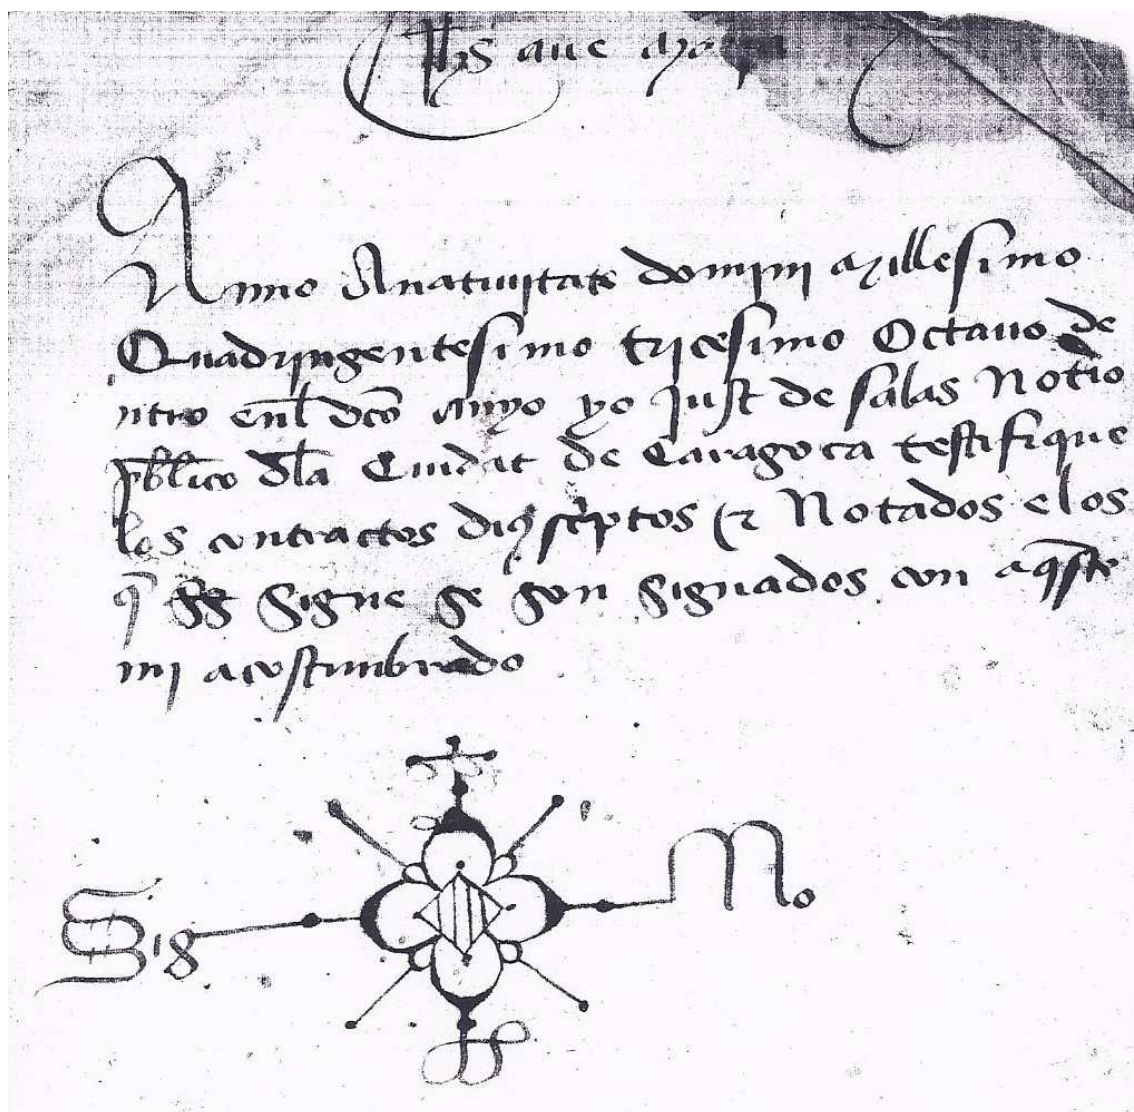 Jhs aue maria
Anno Anatiuitate domini Millesimo
Quadringentesimo tricesimo Octauo de
ntro enl dco anyo yo Just de salas Notrio
pblico dla Ciudat de Caragoça testifique
los contractos dius scptos et Notados e los
q se signe se son signados con aqste
mi acostumbrado
Sig No